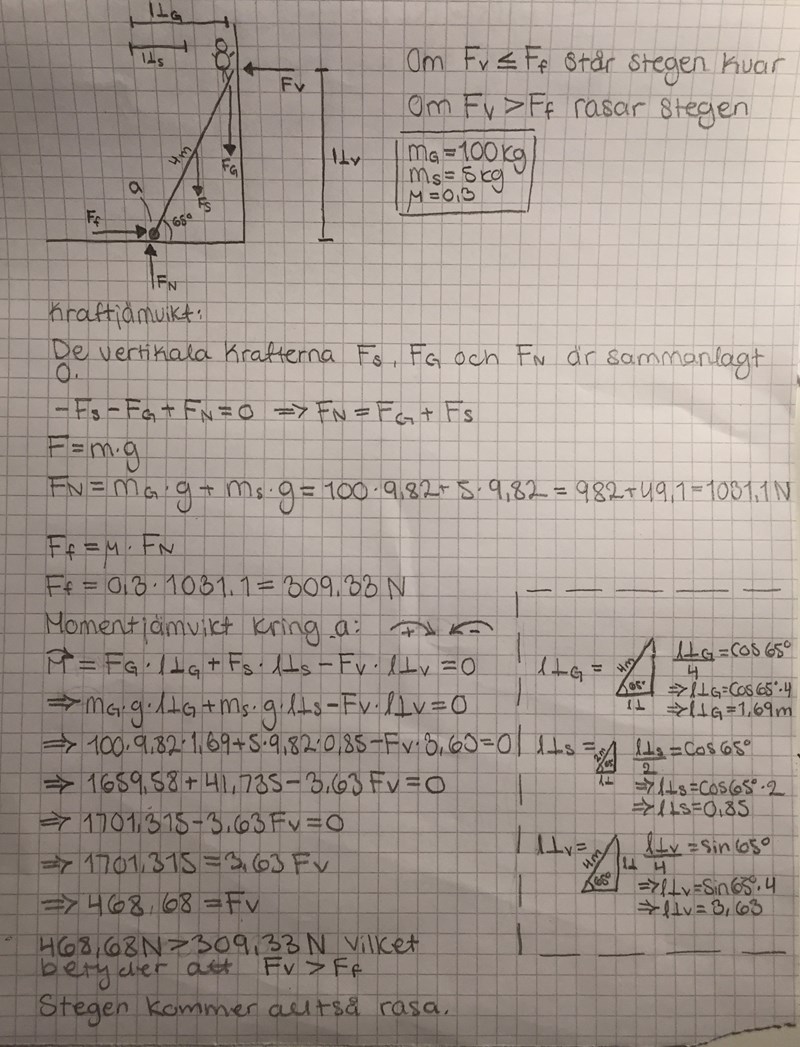 l⊥G
l⊥s
Fv
4m
FG
Fs
l⊥v
a
Ff
65°
FN
Om Fv ≤ Ff står stegen kvar
Om Fv > Ff rasar stegen
mG = 100 kg
ms = 5 kg
μ = 0,3
Kraftjämvikt:
De vertikala krafterna Fs, FG och FN är sammanlagt
0.
-Fs - FG + FN = 0 ⇒ FN = FG + Fs
F = m·g
FN = mG·g + ms·g = 100·9,82 + 5·9,82 = 982 + 49,1 = 1031,1 N
Ff = μ · FN
Ff = 0,3 · 1031,1 = 309,33 N
Momentjämvikt kring a: + -
M = FG · l⊥G + Fs · l⊥s - Fv · l⊥v = 0
⇒ mG·g·l⊥G + ms·g·l⊥s - Fv·l⊥v = 0
⇒ 100·9,82·1,69 + 5·9,82·0,85 - Fv·3,63 = 0
⇒ 1659,58 + 41,735 - 3,63 Fv = 0
⇒ 1701,315 - 3,63 Fv = 0
⇒ 1701,315 = 3,63 Fv
⇒ 468,68 = Fv
468,68 N > 309,33 N vilket
betyder att Fv > Ff
Stegen kommer alltså rasa.
l⊥G = 4m 65° l⊥ l⊥G/4 = cos 65°
⇒ l⊥G = cos 65°·4
⇒ l⊥G = 1,69 m
l⊥s = l⊥ l⊥s/2 = cos 65°
⇒ l⊥s = cos 65°·2
⇒ l⊥s = 0,85
l⊥v = 4m 65° l⊥ l⊥v/4 = sin 65°
⇒ l⊥v = sin 65°·4
⇒ l⊥v = 3,63